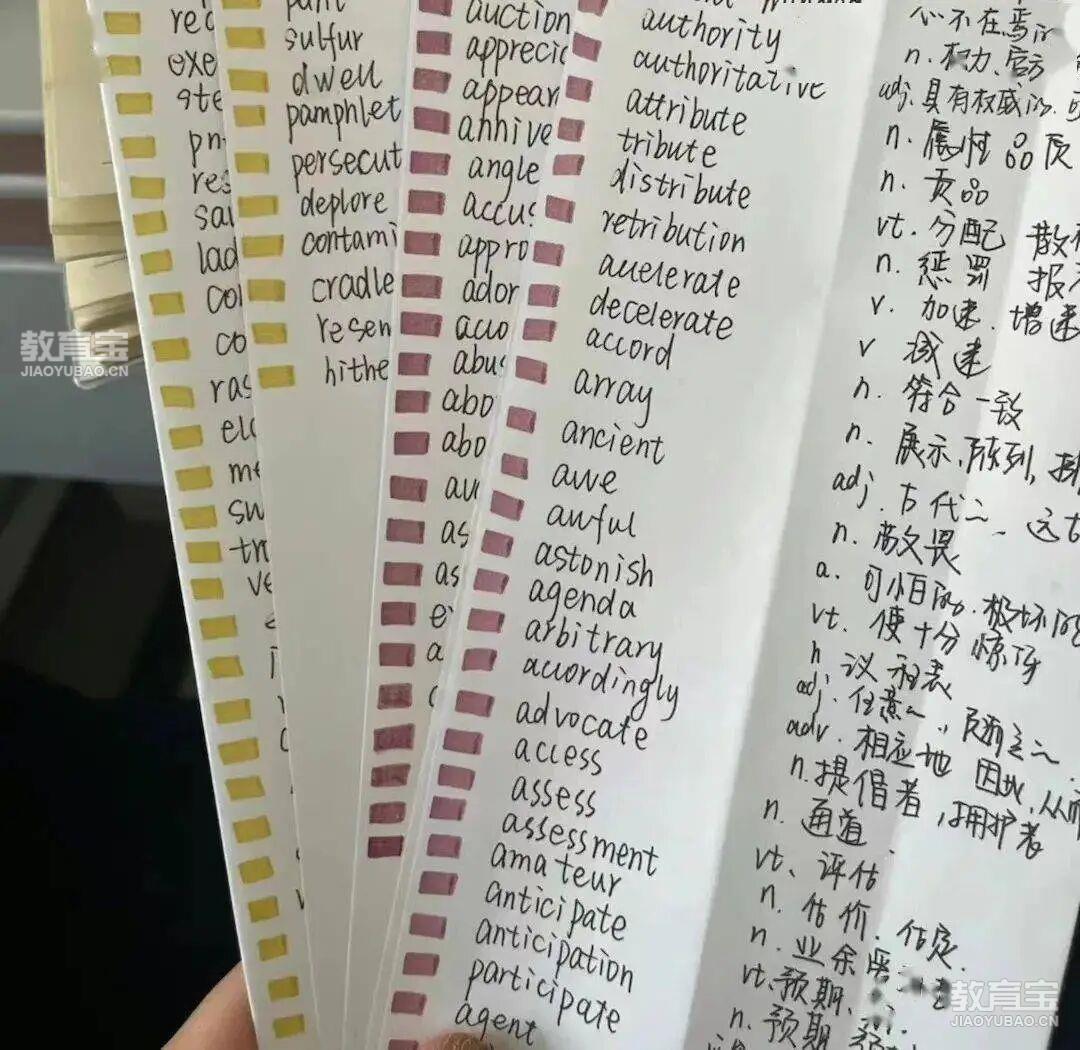 red
oxe
ste
pn
res
sau
lad
col
co
ras
elc
me
sw
tr
ve
pant
sulfur
dwell
pamphlet
persecut
deplore
contami
cradle
resen
hithe
auction
apprecia
appear
annive
angle
accus
appro
ador
acco
abus
abo
abo
au
as
as
authority
authoritative
attribute
tribute
distribute
retribution
auelerate
decelerate
accord
array
ancient
awe
awful
astonish
agenda
arbitrary
accordingly
advocate
access
assess
assessment
amateur
anticipate
anticipation
participate
agent
心不在焉的
n. 权力、官方
adj. 具有权威的.
n. 属性 品质
n. 贡品
vt. 分配 散
n. 惩罚 报
v. 加速. 增速
v 减速
n. 符合一致
n. 展示、陈列,
adj. 古代的 远古
n. 敬畏
a. 可怕的. 极坏的
vt. 使十分惊讶
n 议程表
adj. 任意的, 武断的.
adv. 相应地 因此, 从而
n. 提倡者, 拥护者
n. 通道.
vt. 评估
n. 估价. 估定.
n. 业余爱
vt. 预期、
n. 预期
教育宝
JIAOYUBAO.CN
教育宝
JIAOYUBAO.CN